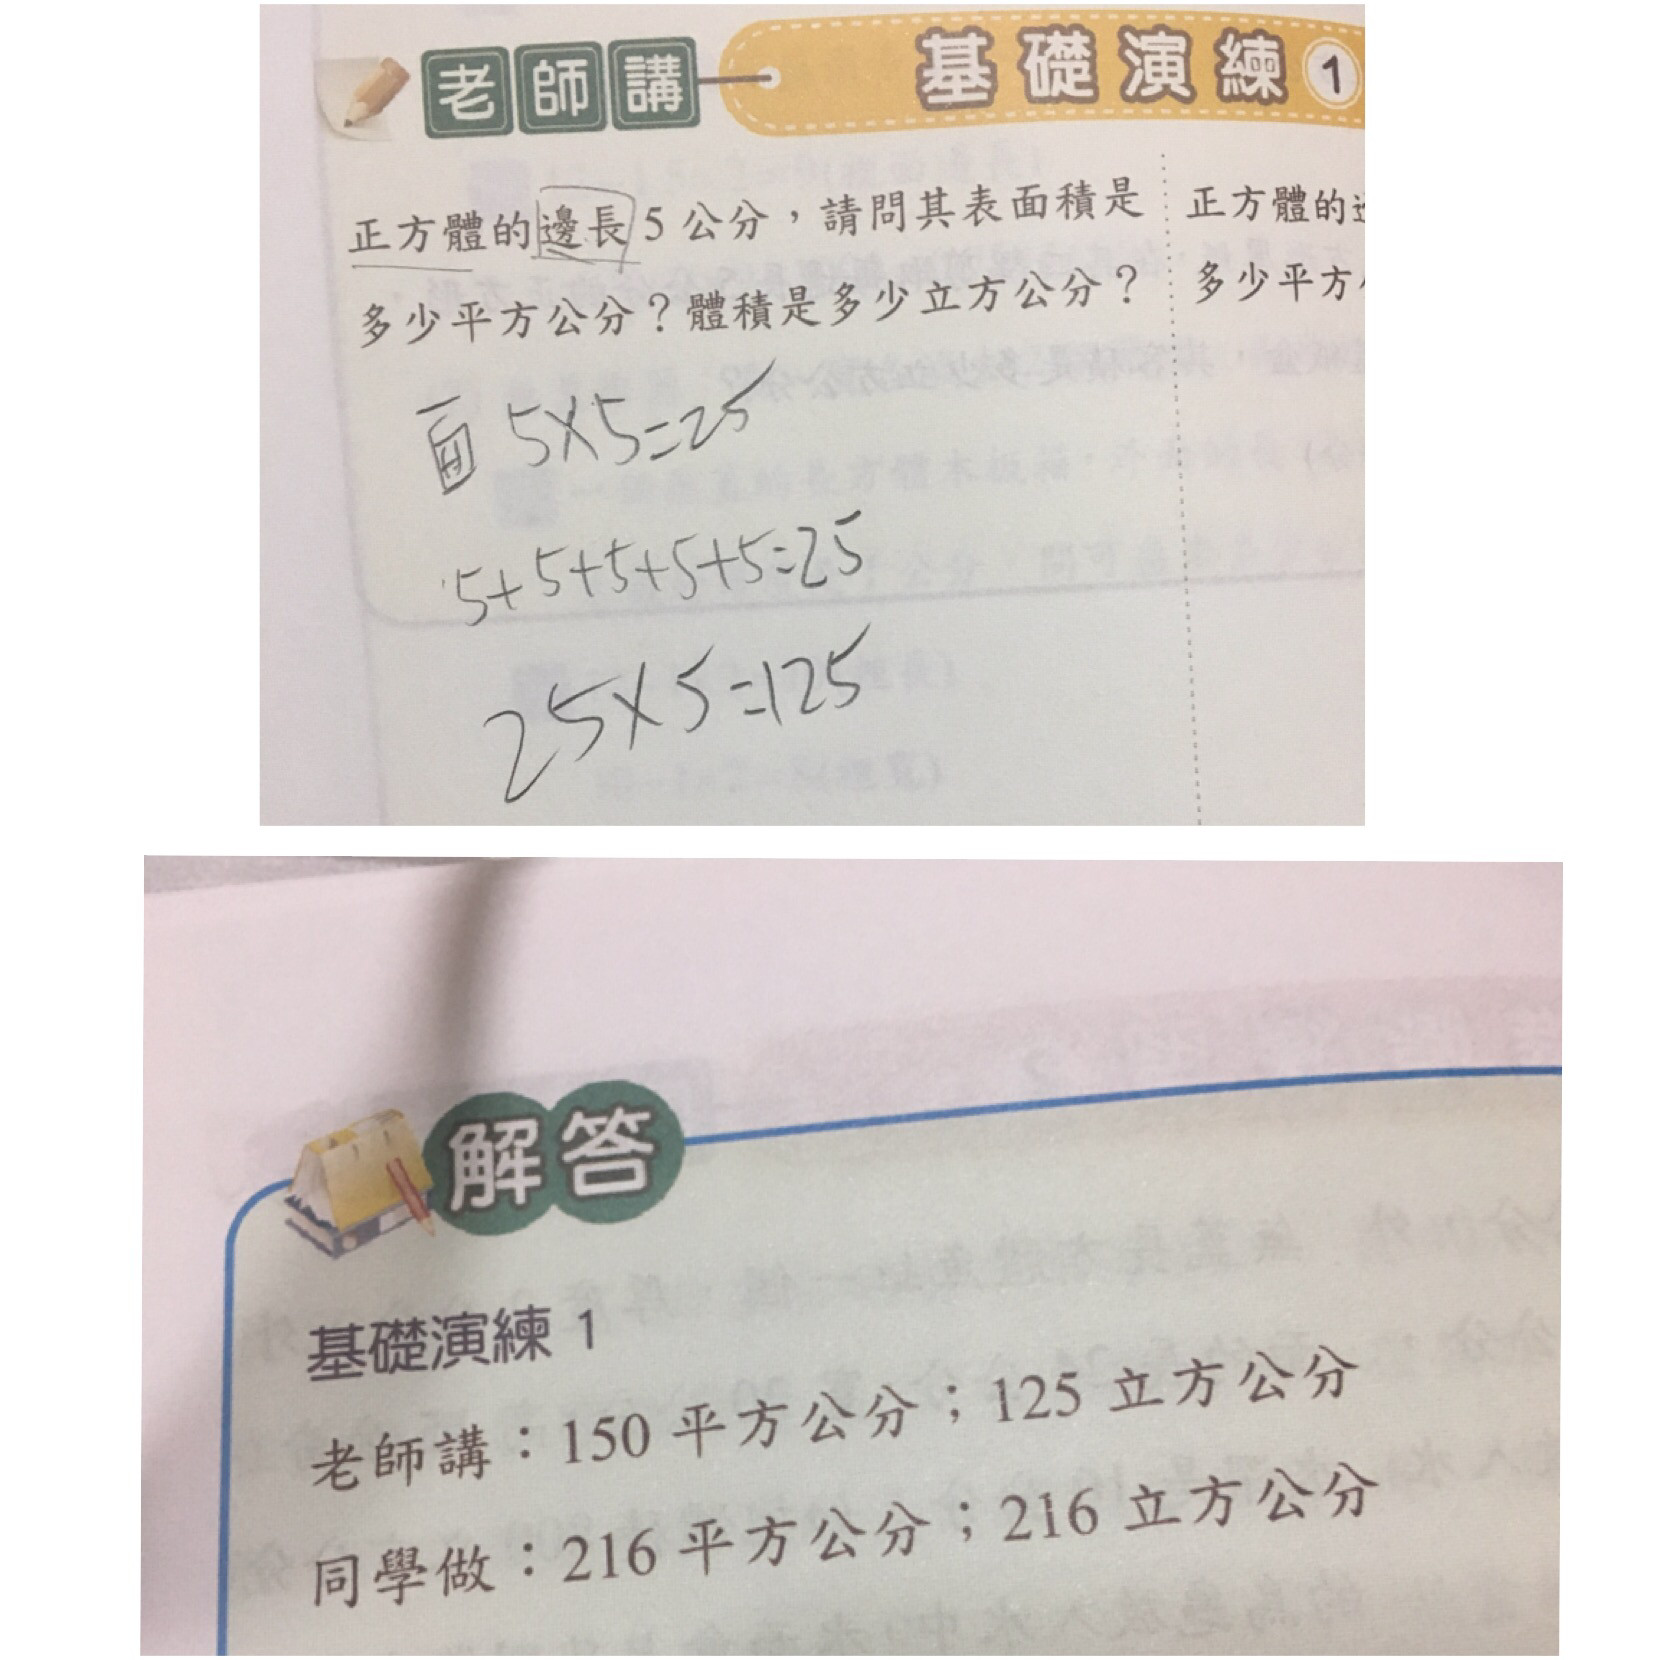 老師講 基礎演練 1
正方體的邊長5公分，請問其表面積是
多少平方公分？體積是多少立方公分？
正方體的
多少平方
面 5×5=25
5+5+5+5+5=25
25×5=125
解答
基礎演練 1
老師講：150 平方公分；125 立方公分
同學做：216 平方公分；216 立方公分